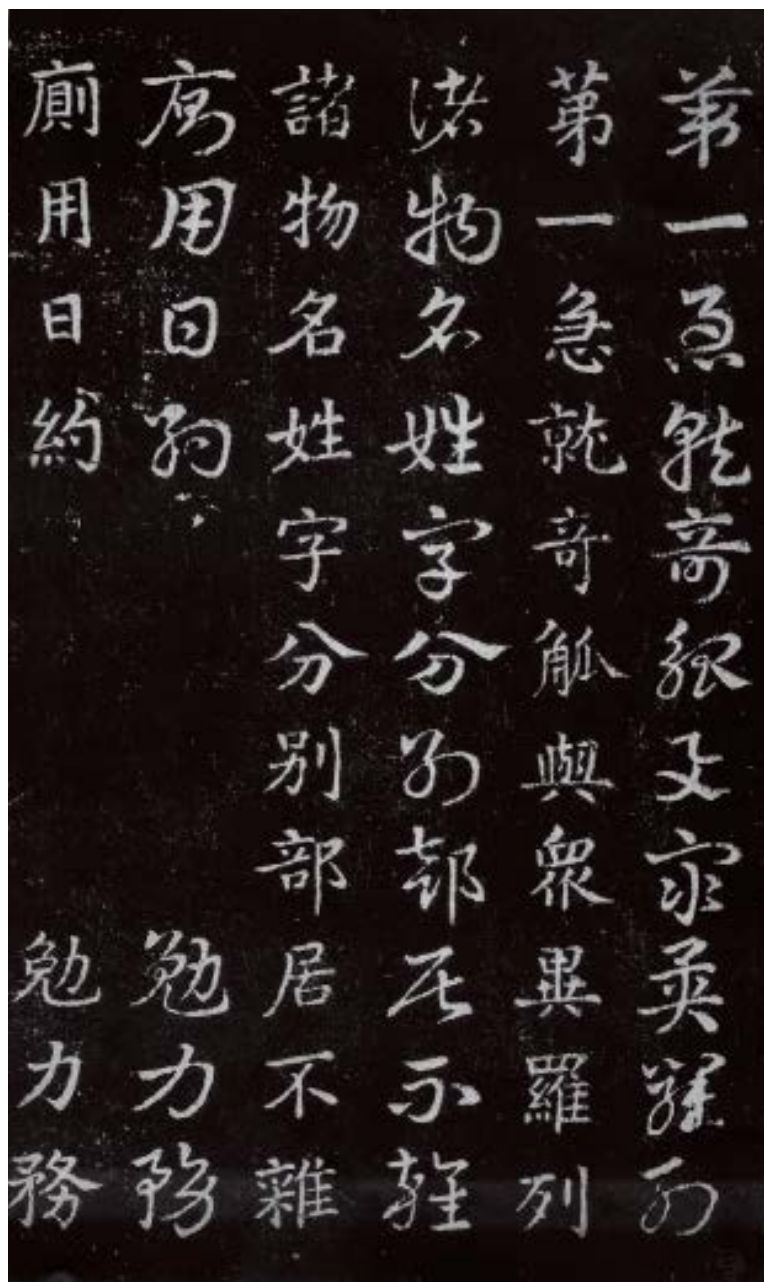 第一急就奇觚与眾異羅列
第一急就奇觚與眾異羅列
諸物名姓字分別部居不雜
諸物名姓字分別部居不雜
廁用日約 勉力務
廁用日約 勉力務